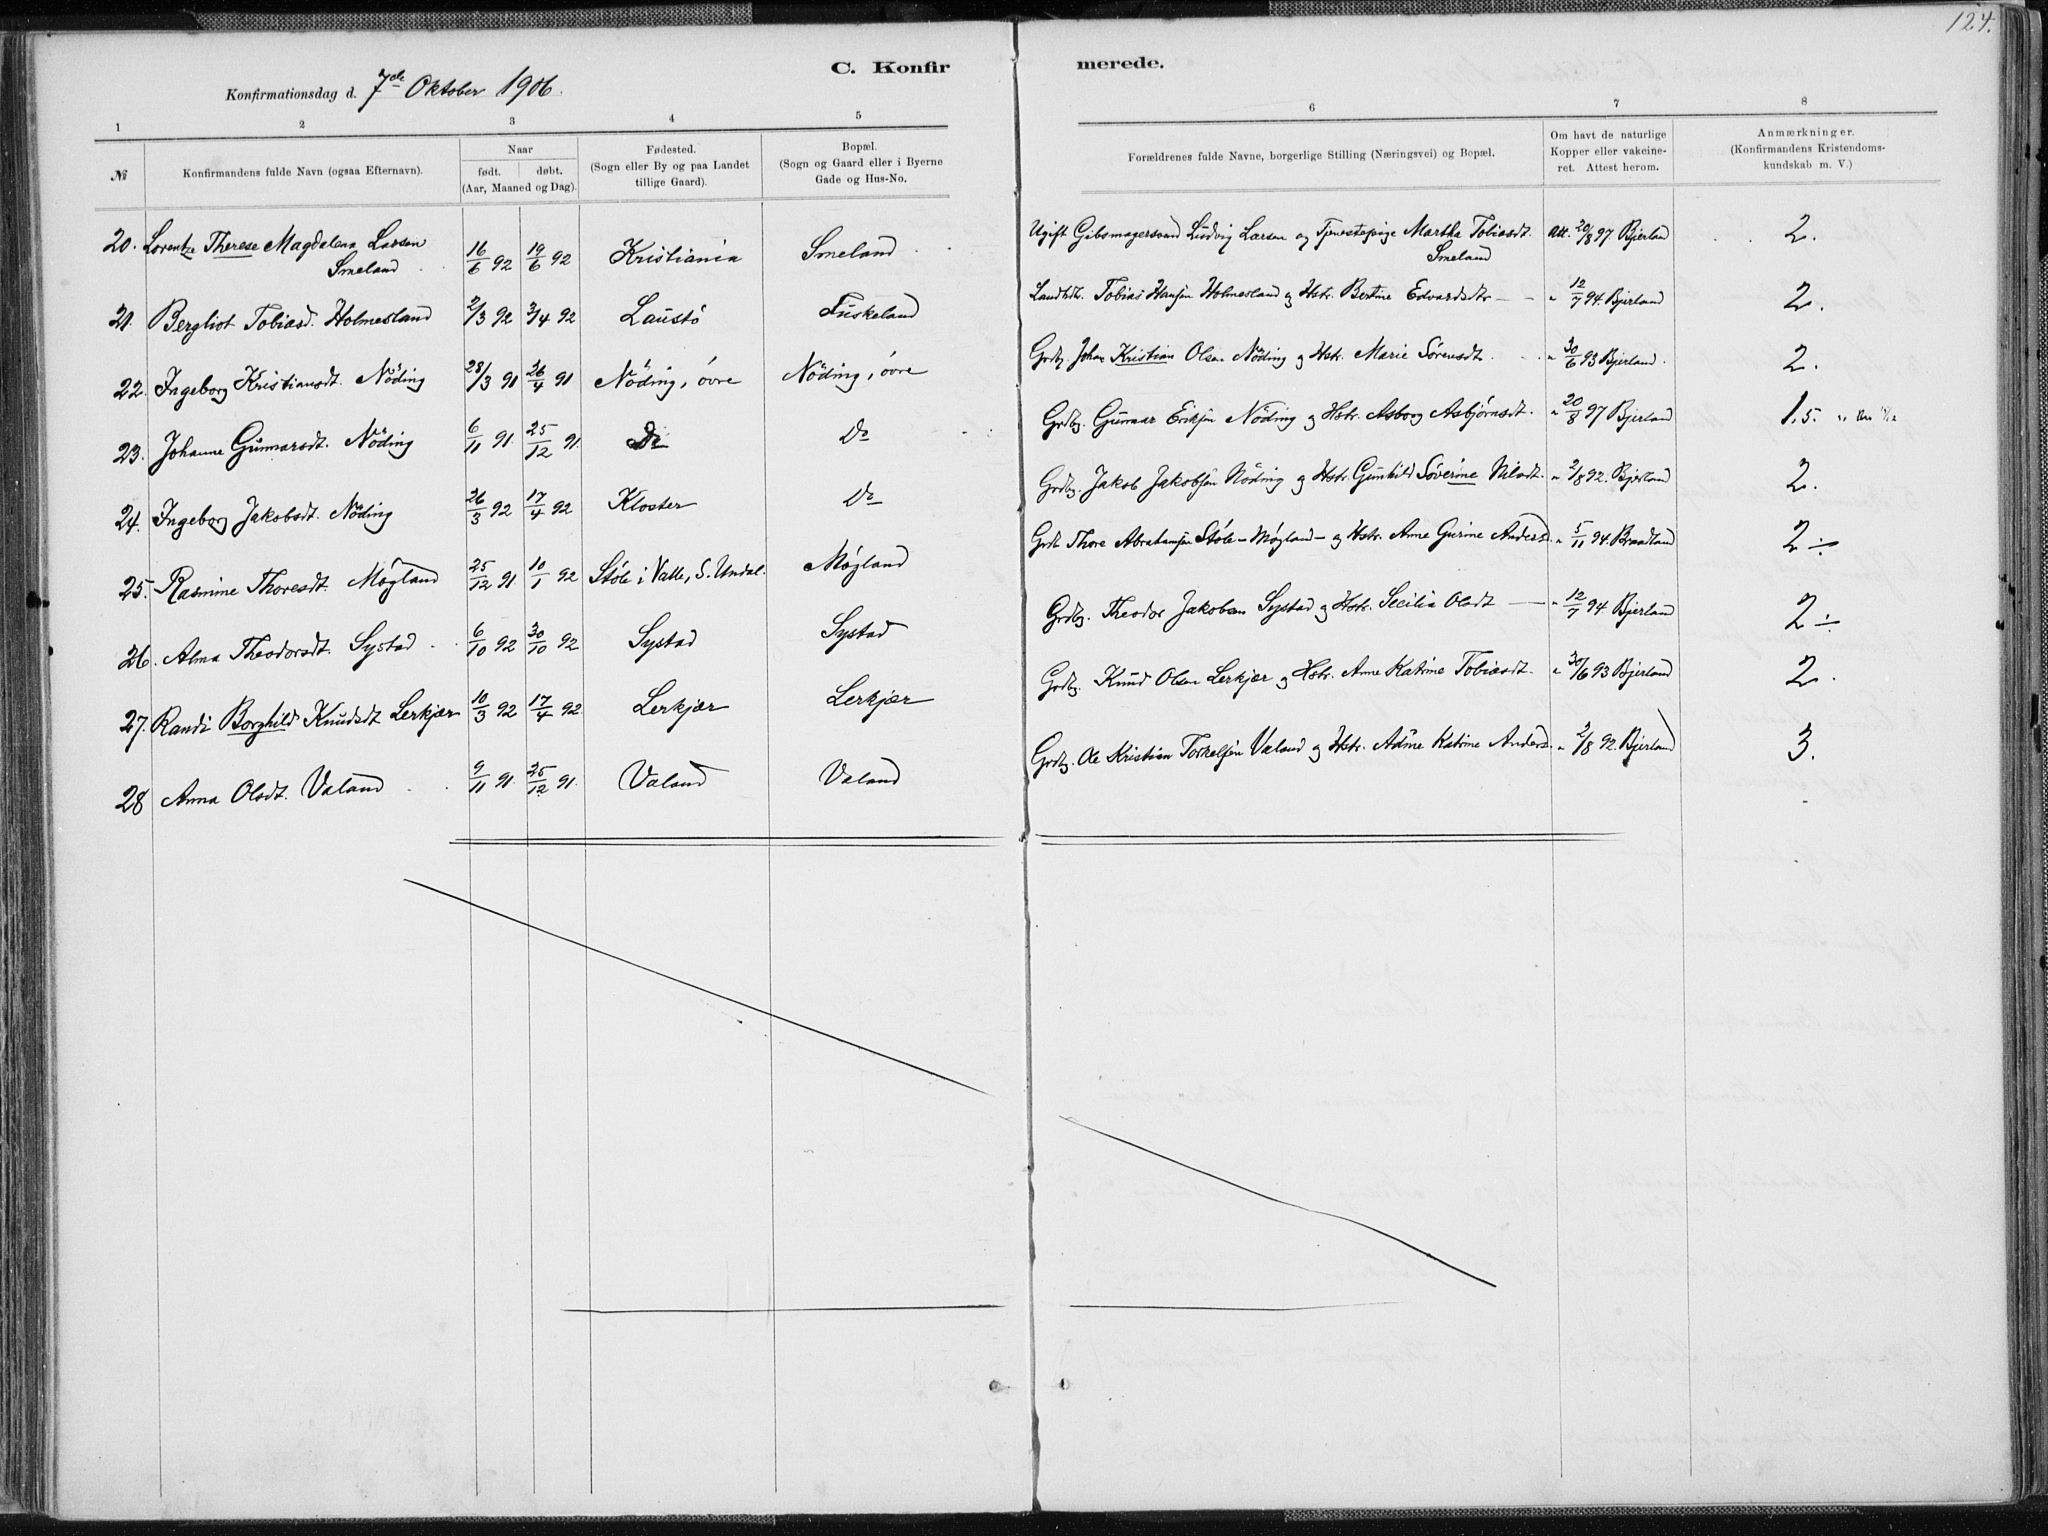 124.
C. Konfir merede.
Konfirmationsdag d. 7de Oktober 1906.
1 2 3 4 5 6 7 8
№ Konfirmandens fulde Navn (ogsaa Efternavn). Naar født. døbt. (Aar, Maaned og Dag). Fødested. (Sogn eller By og paa Landet tillige Gaard). Bopæl. (Sogn og Gaard eller i Byerne Gade og Hus-No. Forældrenes fulde Navne, borgerlige Stilling (Næringsvei) og Bopæl. Om havt de naturlige Kopper eller vakcineret. Attest herom. Anmærkninger. (Konfirmandens Kristendomskundskab m. V.)
20. Lorentze Therese Magdalena Larsen Smeland 16/6 92 19/6 92 Kristiania Smeland Ugift Gibsmagersvend Ludvig Larsen og Tjenestepige Martha Tobiasdt. Smeland Att. 20/8 97 Bjerland 2.
21. Bergliot Tobiasd. Holmesland 2/3 92 3/4 92 Laustø Fuskeland Landhdr. Tobias Hansen Holmesland og Hstr. Bertine Edvardsdtr — — " 12/7 94. Bjerland 2.
22. Ingeborg Kristiansdt. Nöding 28/3 91 26/4 91 Nöding, övre Nöding, övre Grdbg. Johan Kristian Olsen Nöding og Hstr. Marie Sørensdt. " 30/6 93 Bjerland. 2.
23. Johanne Gunnarsdt. Nöding 6/11 91. 25/12 91. Do Do Grdbg. Gunnar Eriksen Nöding og Hstr. Asborg Asbjørnsdt. " 20/8 97 Bjerland 1,5.
24. Ingeborg Jakobsdt. Nöding 26/3 92 17/4 92 Kloster Do Grdbg. Jakob Jakobsen Nöding og Hstr. Gunhild Søverine Nilsdt. " 2/8 92. Bjerland 2.
25. Rasmine Thoresdt. Møgland 25/12 91 10/1 92 Støle i Valle, S. Undal. Møgland Grdb. Thore Abrahamsen Støle - Møgland - og Hstr. Anne Gurine Andersd. " 5/11 94. Brandland 2 ÷
26. Alma Theodorsdt. Systad 6/10 92 30/10 92 Systad Systad Grdbg. Theodor Jakobsen Systad og Hstr. Secilia Olsdt — " 12/7 94 Bjerland 2 ÷
27. Randi Borghild Knudsdt Lerkjær 10/3 92 17/4 92. Lerkjær Lerkjær Grdbg. Knud Olsen Lerkjær og Hstr. Anne Katrine Tobiasdt. " 30/6 93 Bjerland 2.
28 Anna Olsdt. Valand 9/11 91. 25/12 91. Valand Valand Grdbg. Ole Kristian Torkelsen Valand og Hstr. Adne Katrine Anders. " 2/8 92. Bjerland 3.